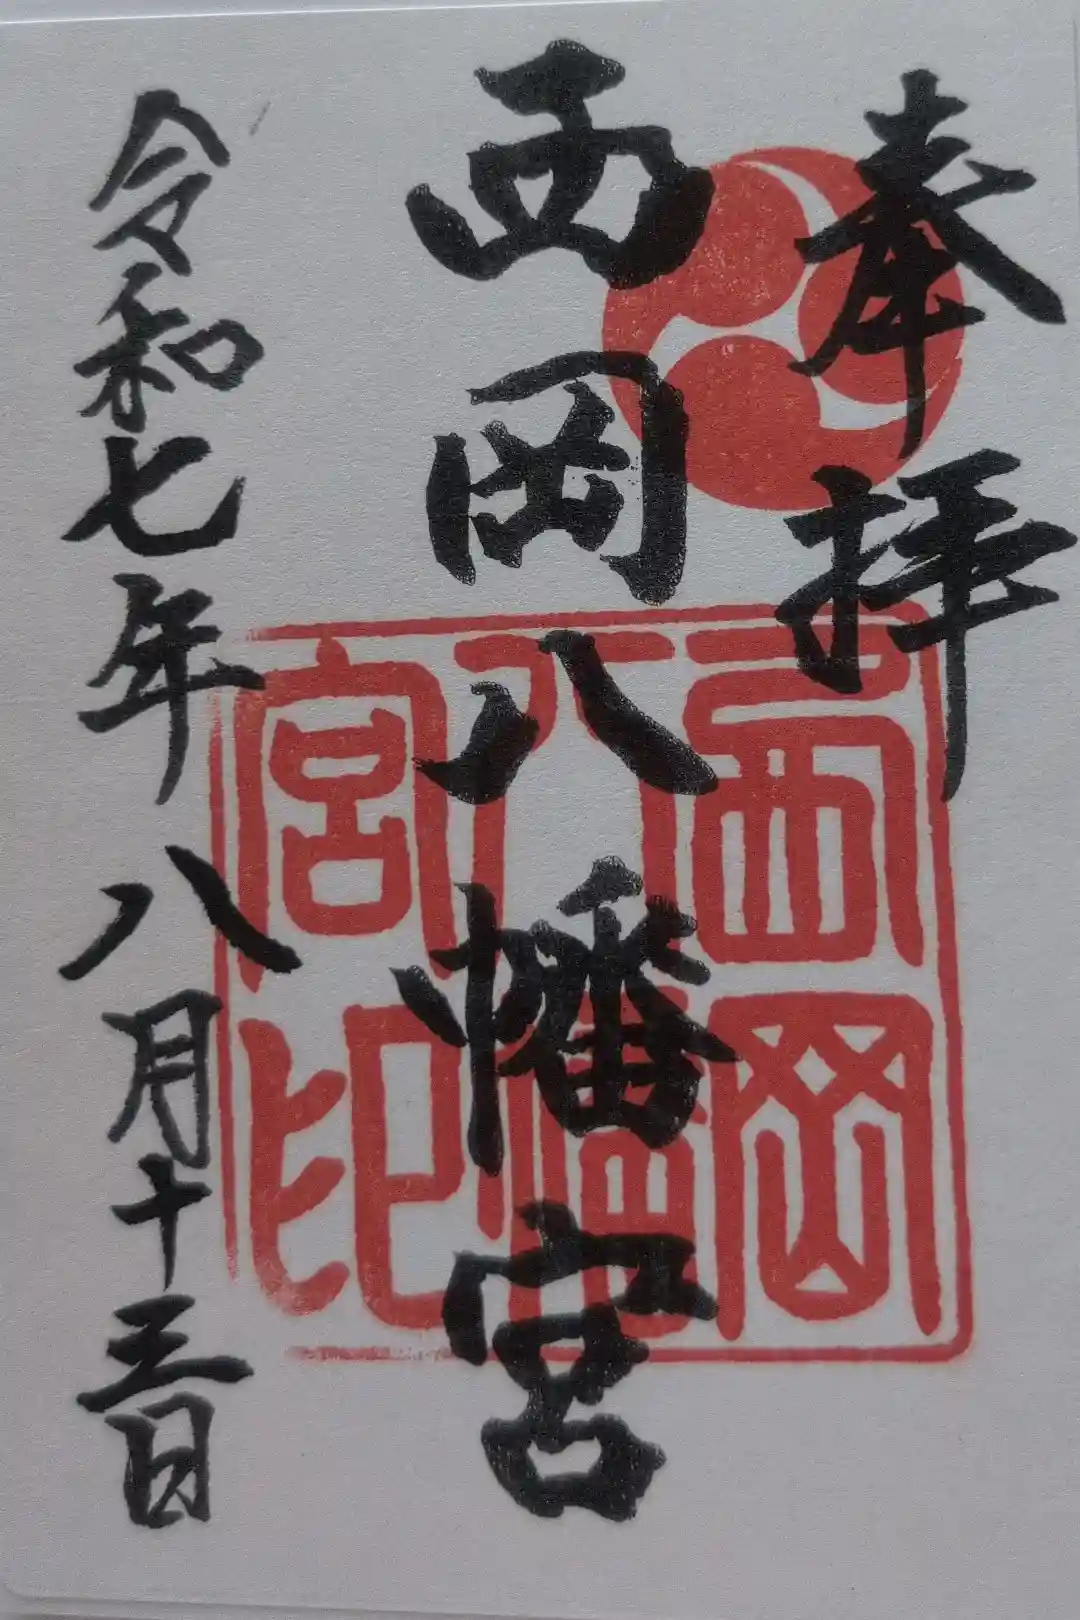 奉拝
西岡八幡宮
令和七年八月十三日
西岡
八幡
宮印